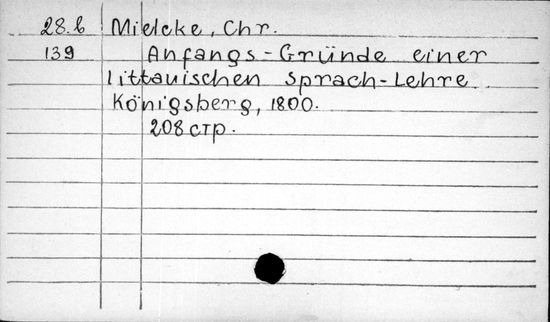 28.b Mielcke, Chr.
139 Anfangs-Gründe einer
littauischen Sprach-Lehre
Königsberg, 1800.
208 стр.